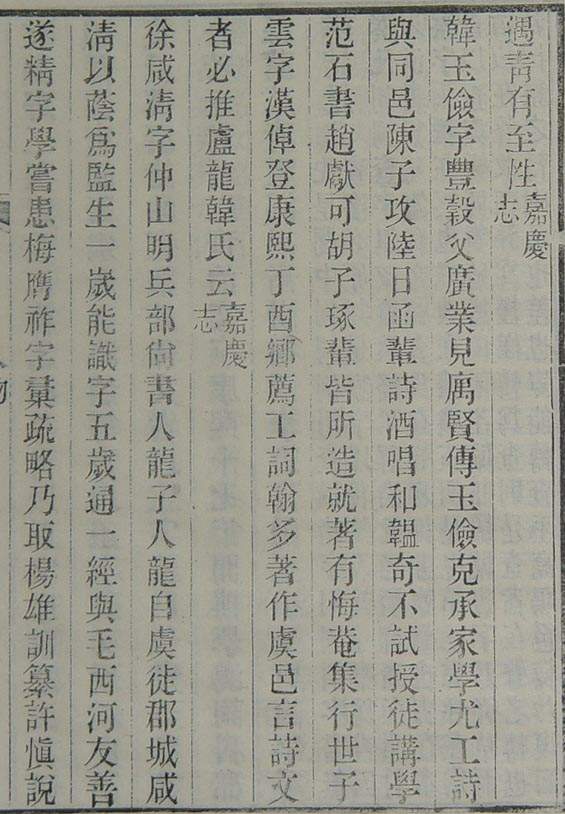 遇靑有至性嘉慶志
韓玉儉字豐穀父廣業見寓賢傳玉儉克承家學尤工詩
與同邑陳子攻陸日函輩詩酒唱和韞奇不試授徒講學
范石書趙獻可胡子琢輩皆所造就著有悔菴集行世子
雲字漢倬登康熙丁酉鄉薦工詞翰多著作虞邑言詩文
者必推盧龍韓氏云嘉慶志
徐咸淸字仲山明兵部尙書人龍子人龍自虞徒郡城咸
淸以蔭爲監生一歲能識字五歲通一經與毛西河友善
遂精字學嘗患梅膺祚字彙疏略乃取楊雄訓纂許愼說